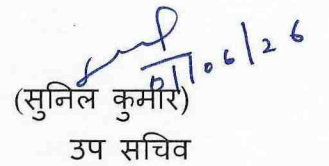 01/06/26
(सुनिल कुमार)
उप सचिव